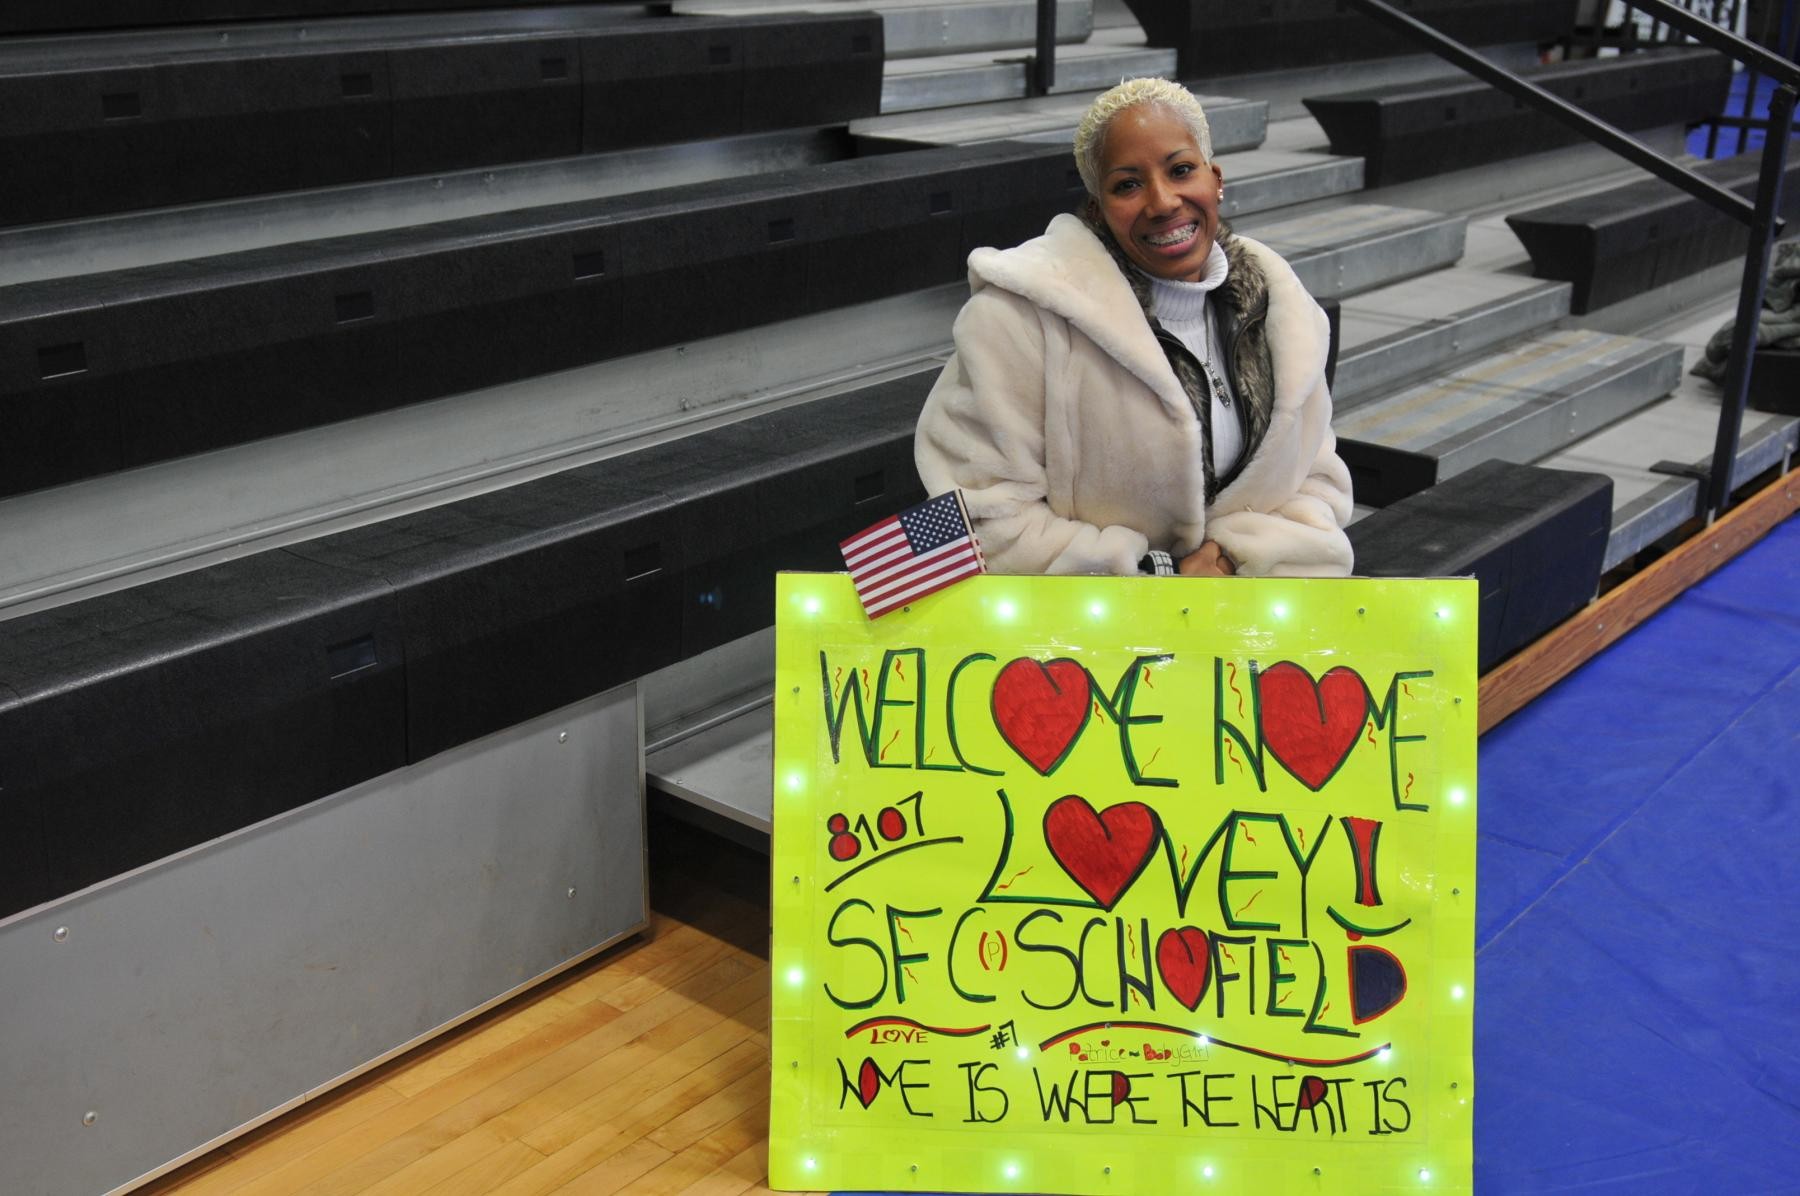 WELCOME HOME
8107 LOVEY!
SFC (P) SCHOFIELD
LOVE #7 Patrice~BabyGirl
HOME IS WHERE THE HEART IS